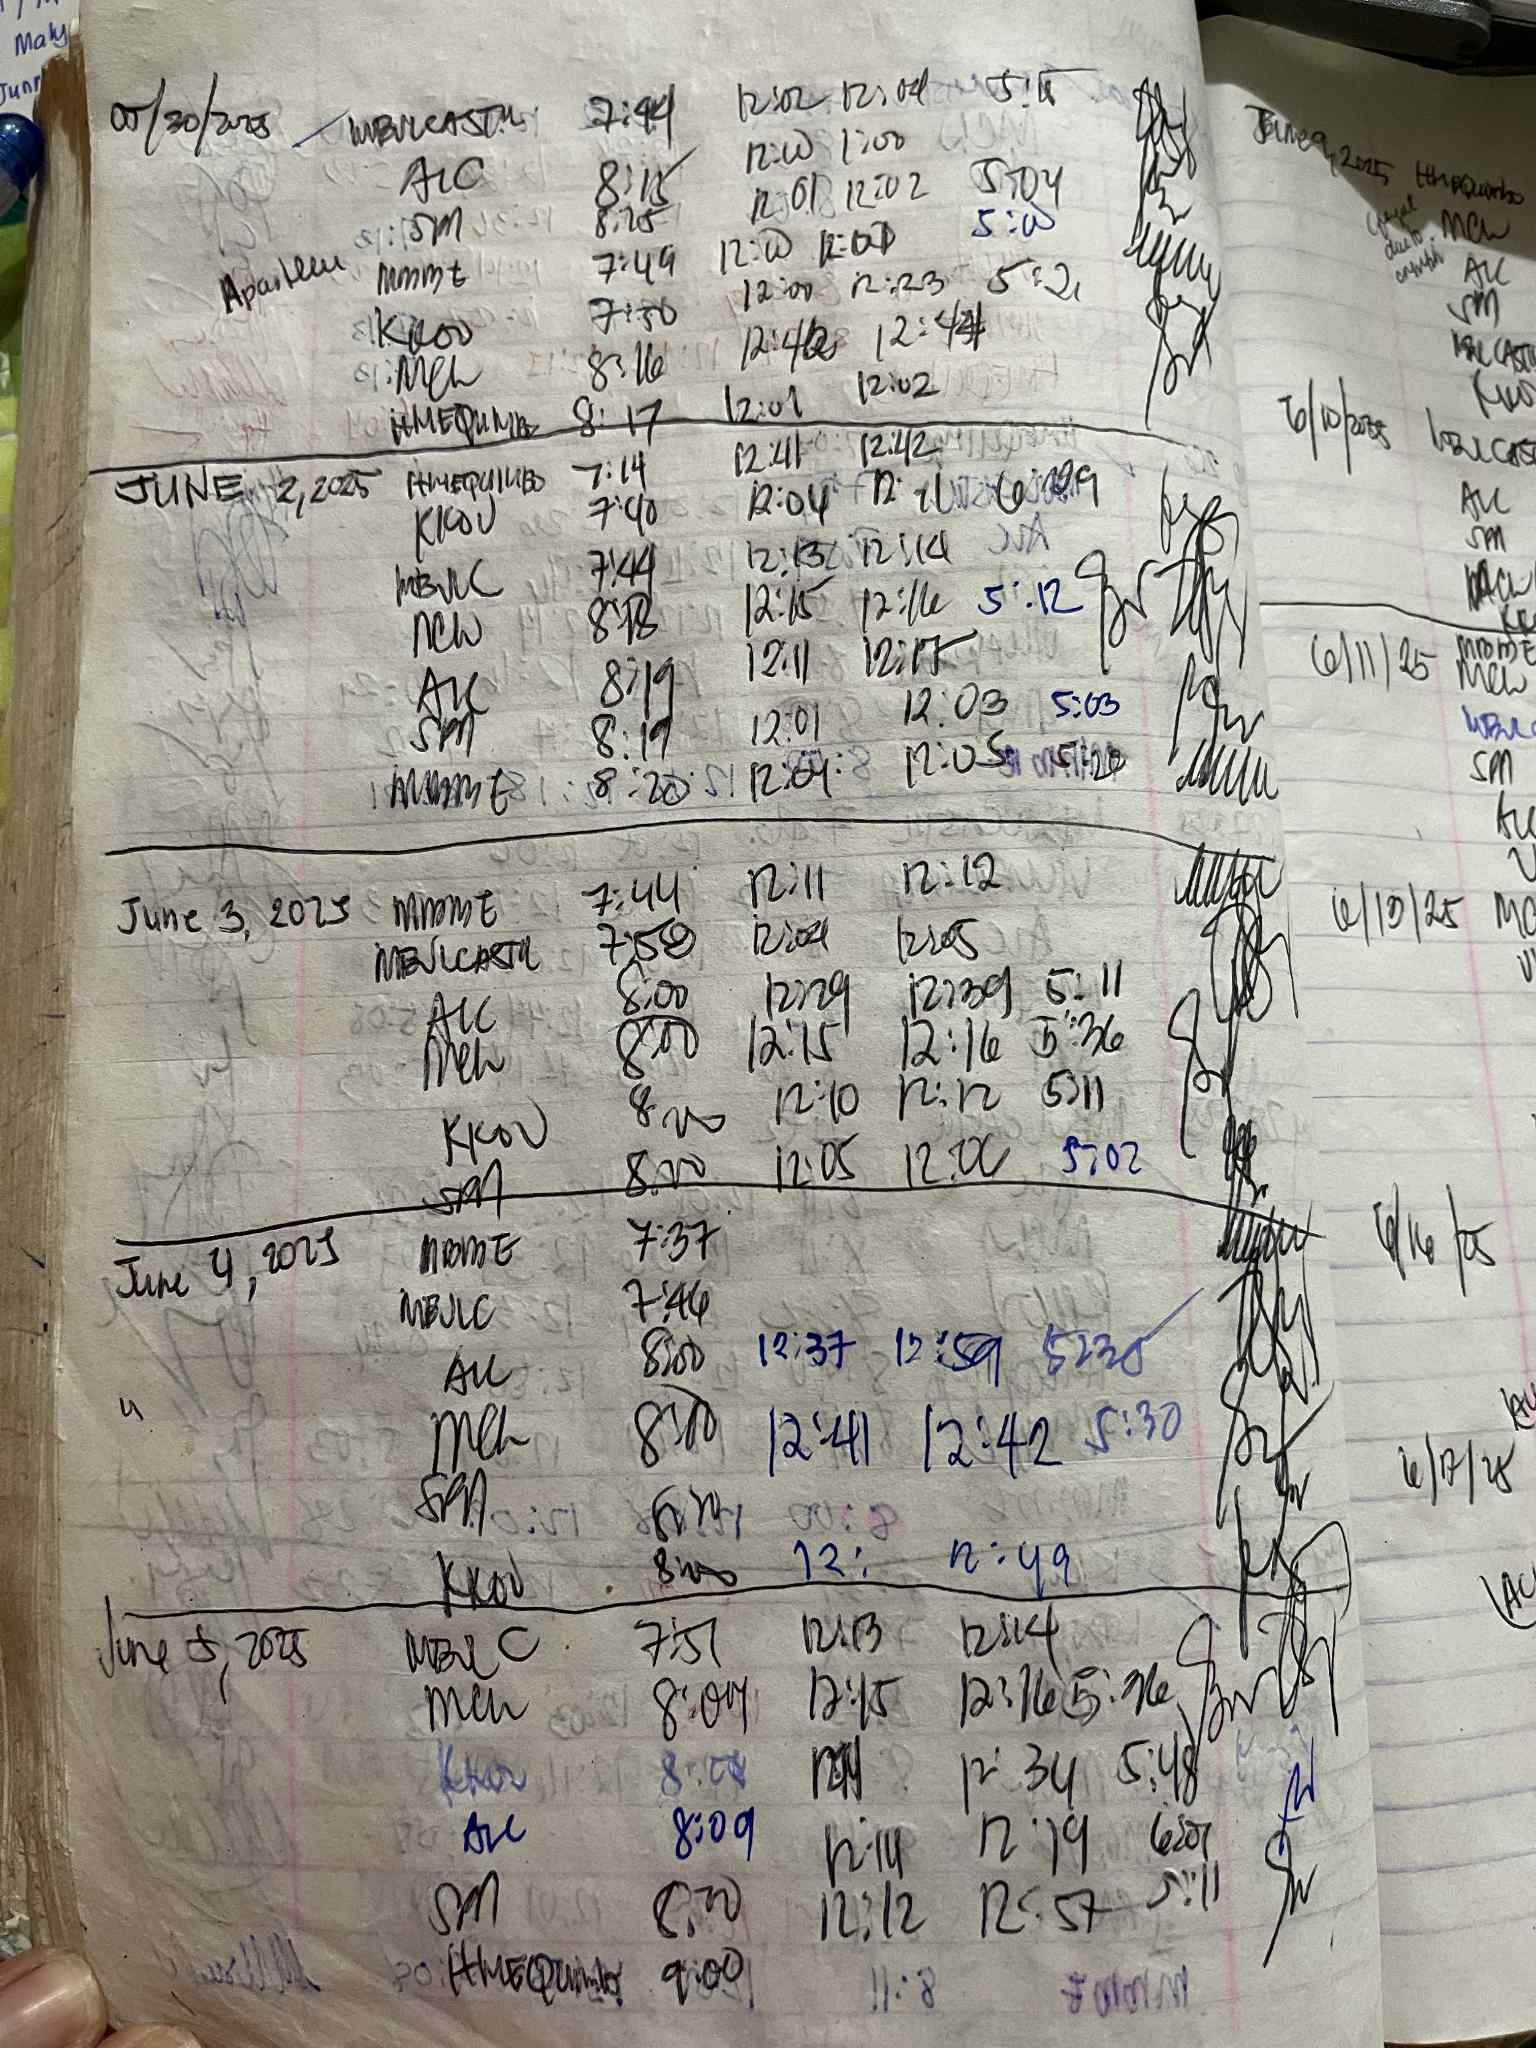 Maky
05/30/2025 MBVLCASTIL 7:44 12:02 12:04 5:15
ALC 8:15 12:00 1:00
SM 8:25 12:01 12:02 5:04
MMME 7:49 12:00 12:01 5:00
KKOU 7:50 12:00 12:23 5:21
MCW 8:16 12:42 12:44
HMEQUIMBO 8:17 12:01 12:02
JUNE 2, 2025 HMEQUIMBO 7:14 12:41 12:42
KKOU 7:40 12:04 12:21 6:29
MBVLC 7:44 12:13 12:14
MCW 8:18 12:15 12:16 5:12
ALC 8:19 12:11 12:15
SM 8:19 12:01 12:03 5:03
MMME 8:20 12:04 12:05 5:20
June 3, 2025 MMME 7:44 12:11 12:12
MBVLCASTIL 7:50 12:04 12:05
ALC 8:00 12:29 12:39 5:11
MCW 8:00 12:15 12:16 5:36
KKOU 8:00 12:10 12:12 5:11
SM 8:00 12:05 12:06 5:02
June 4, 2025 MMME 7:37
MBVLC 7:46
ALC 8:00 12:37 12:59 5:30
" MCW 8:00 12:41 12:42 5:30
SM
KKOU 8:00 12: 12:49
June 5, 2025 MBVLC 7:51 12:13 12:14
MCW 8:04 12:15 12:16 5:36
KKOU 12:34 5:48
ALC 8:09 12:14 12:19 6:01
SM 8:20 12:12 12:57 5:11
HMEQUIMBO 9:00
June 9, 2025 HMEQUIMBO
MCW
due to
ALC
SM
6/10/2025
ALC
SM
6/11/25 MMME
MCW
SM
6/13/25
6/16/25
6/17/25